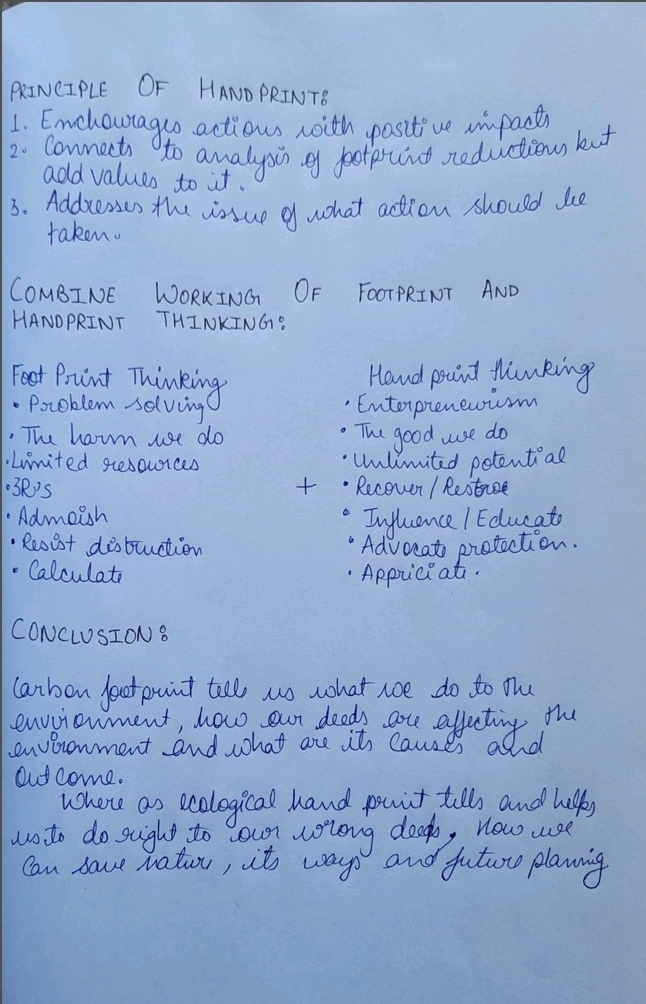 PRINCIPLE OF HANDPRINT:
1. Enchourages actions with positive impacts
2. Connects to analysis of footprint reductions but
add values to it.
3. Addresses the issue of what action should be
taken.
COMBINE WORKING OF FOOTPRINT AND
HANDPRINT THINKING:
Foot Print Thinking
• Problem solving
• The harm we do
• Limited resources
• 3R's
• Admoish
• Resist distruction
• Calculate
+
Hand print thinking
• Enterpreneurism
• The good we do
• Unlimited potential
• Recover/Restroe
• Influence/Educate
• Advocate protection.
• Appriciate.
CONCLUSION:
Carbon footprint tells us what we do to the
environment, how our deeds are affecting the
environment and what are its causes and
outcome.
Where as ecological hand print tells and helps
us to do right to our wrong deeds, How we
can save nature, its ways and future planing